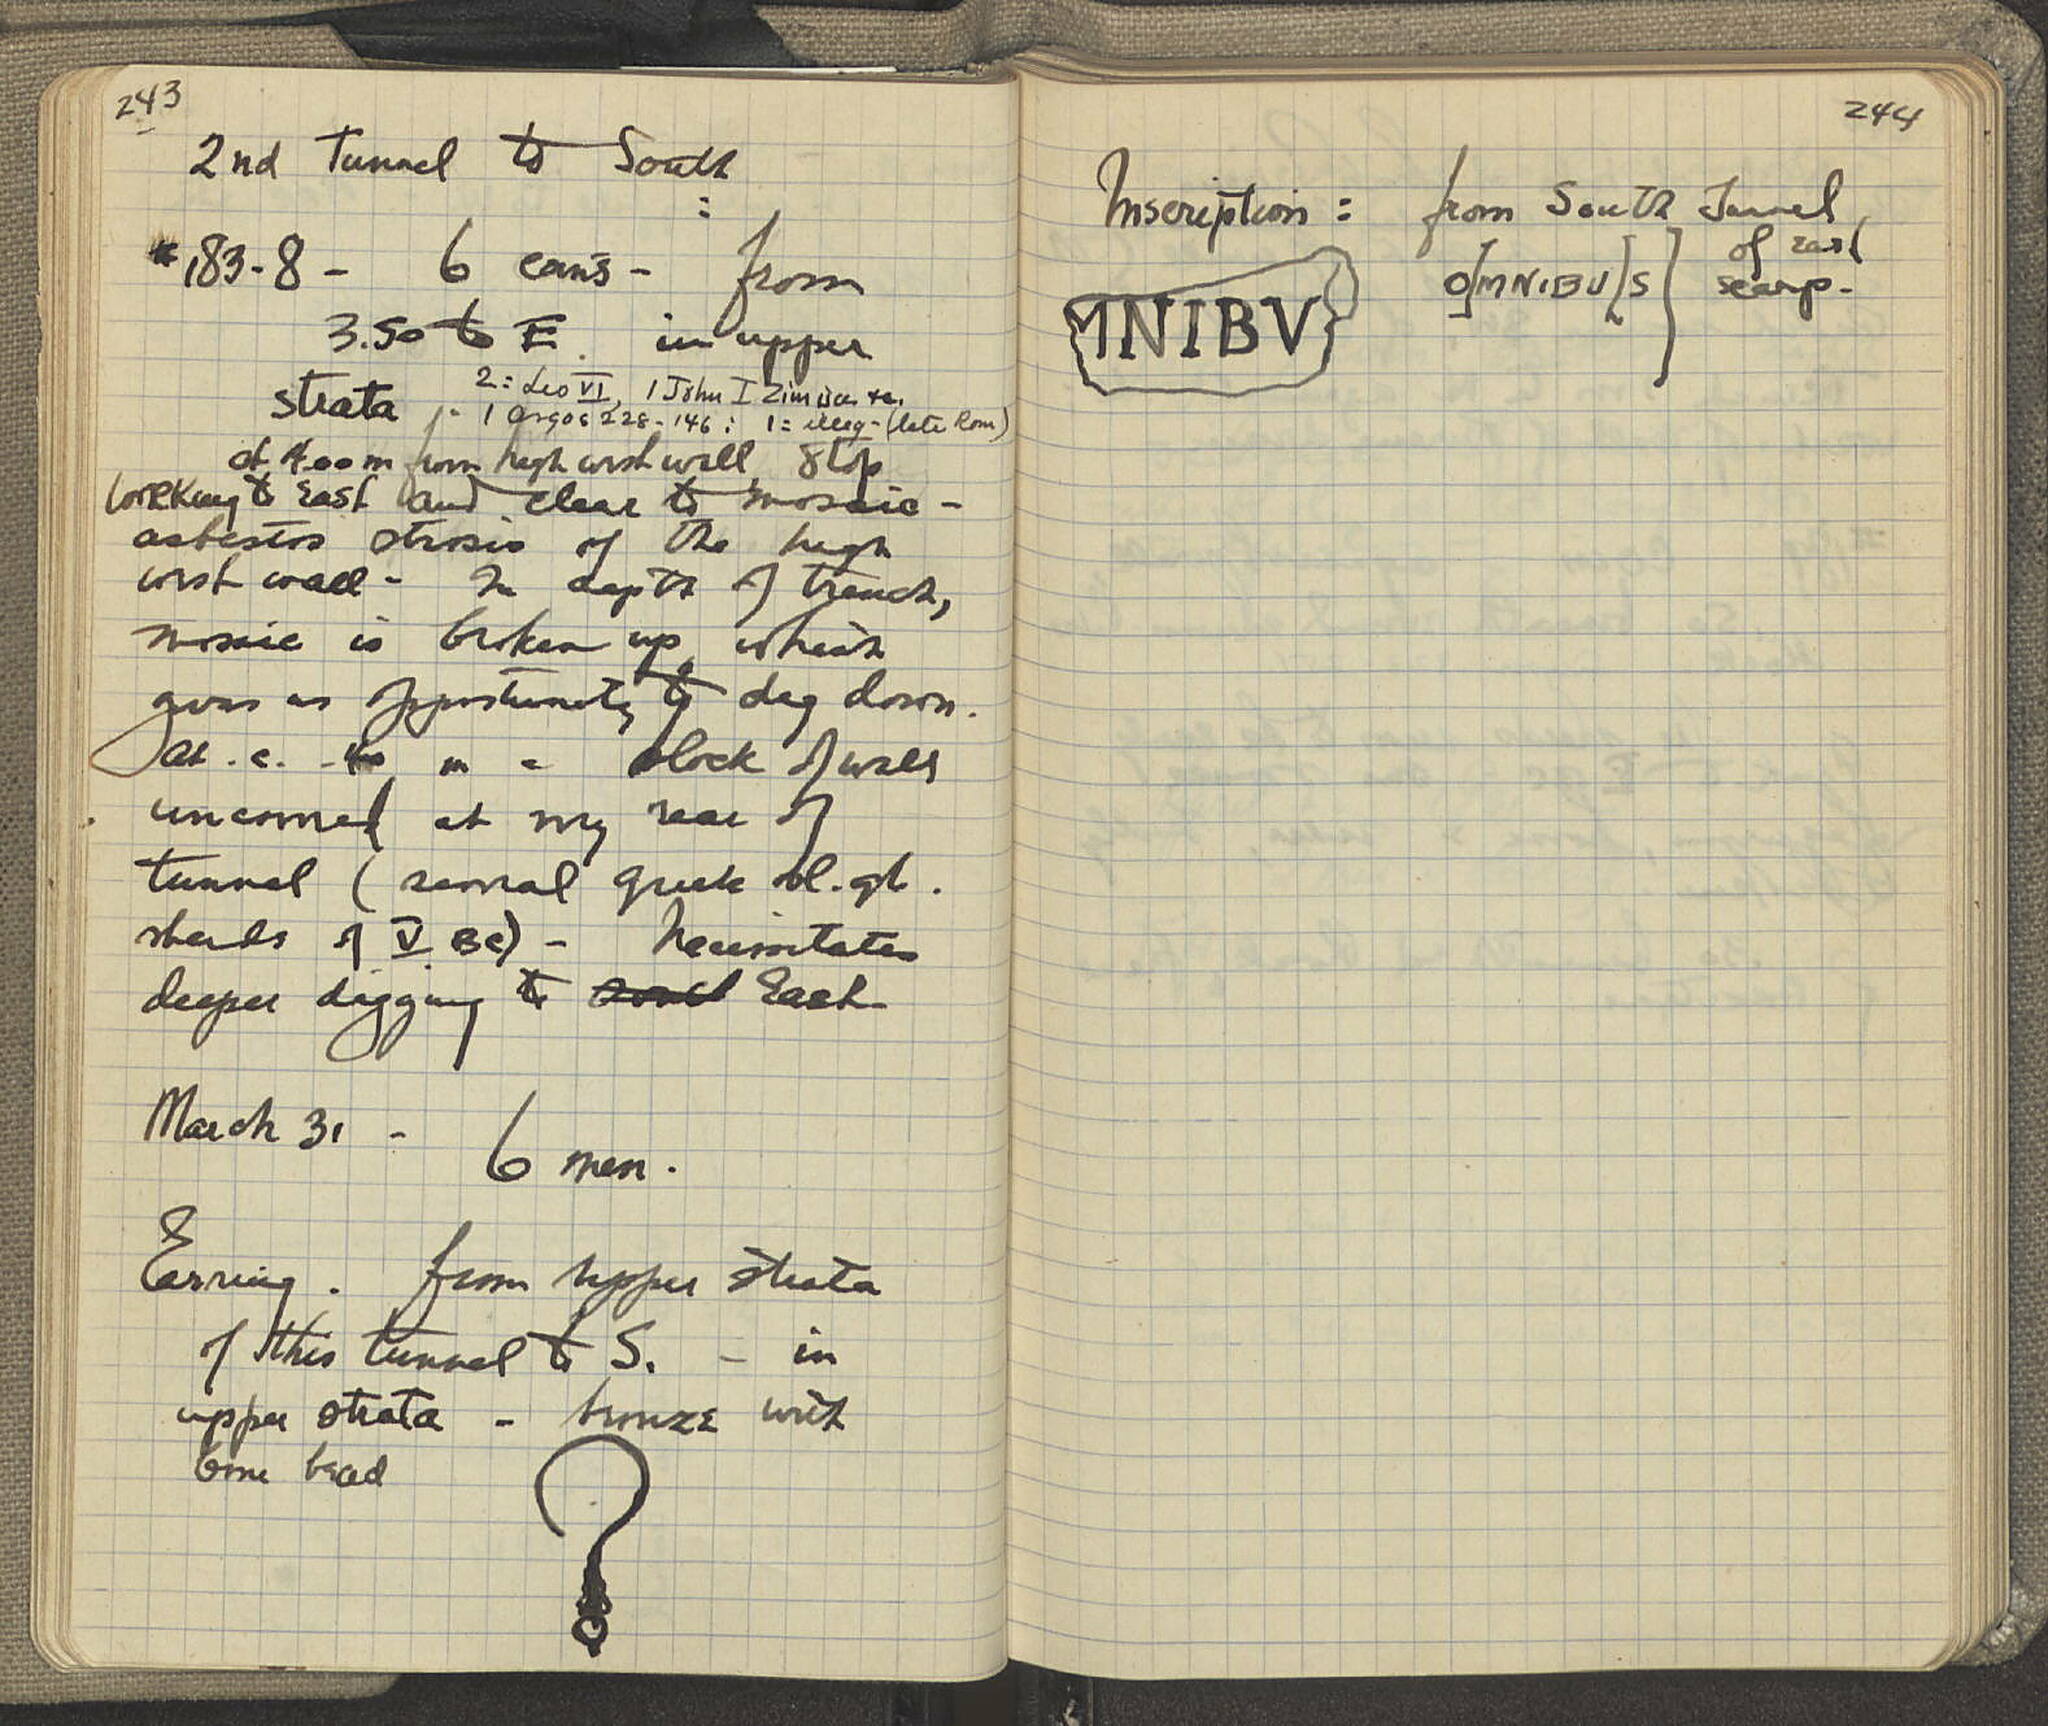 243
2nd Tunnel to South
:
*183-8 - 6 coins - from
3.50 to E. in upper
strata
2 = Leo VI, 1 John I Zimisces
1 Argos 228-146; 1 = illeg - (late Rom)
at 4.00 m from high west wall stop
working to east and clear to mosaic -
of the high
west wall - In depth of trench,
mosaic is broken up which
gives us opportunity to dig down.
At. c. m - block of wall
uncovered at my rear of
tunnel (several Greek bl. gl.
sherds of V BC) - Necessitates
deeper digging to south East
March 31 - 6 men.
Earring. from upper strata
of this tunnel to S. - in
upper strata - bronze with
bone bead
244
Inscription: from South Tunnel,
of east
scarp.
O]MNIBU[S
MNIBV